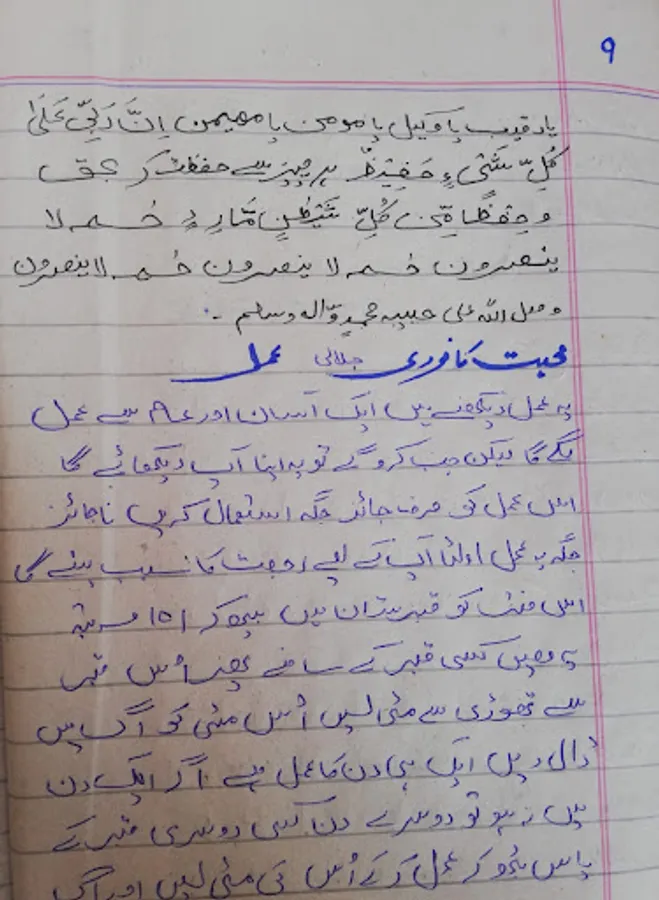 ۹
یارقیب یا وکیل یا مومن یا مھیمن اِنَّ رَبِّیْ عَلیٰ
کُلِّ شَیْ ءٍ حَفِیْظٌ ہر چیز سے حفاظت کر بحق
و حِفْظًا مِّنْ کُلِّ شَیْطٰنٍ مَّارِدٍ حٰـــمہ لا
ینصرون حٰمہ لا ینصرون حٰمہ لا ینصرون
وصل اللہ علی حبیبہ محمدٍ وّالہ وسلم ۔
محبت کا فوری جلالی عمل
یہ عمل دیکھنے میں ایک آسان اور عام سے عمل
لگے گا لیکن جب کرو گے تو یہ اپنا آپ دیکھائے گا
اس عمل کو صرف جائز جگہ استعمال کریں ناجائز
جگہ یہ عمل اولٹا آپ کے لیے رجعت کا سبب بنے گی
اس کو قبرستان میں بیٹھ کر ۱۵۱ مرتبہ
پڑھیں کسی قبر کے سامنے پھر اُس قبر
سے تھوڑی سے مٹی لیں اُس مٹی کو آگ میں
ڈال دیں ایک ہی دن کا عمل ہے اگر ایک دن
میں نہ ہو تو دوسرے دن کسی دوسری قبر کے
پاس بیٹھ کر عمل کر کے اُس کی مٹی لیں اور آگ